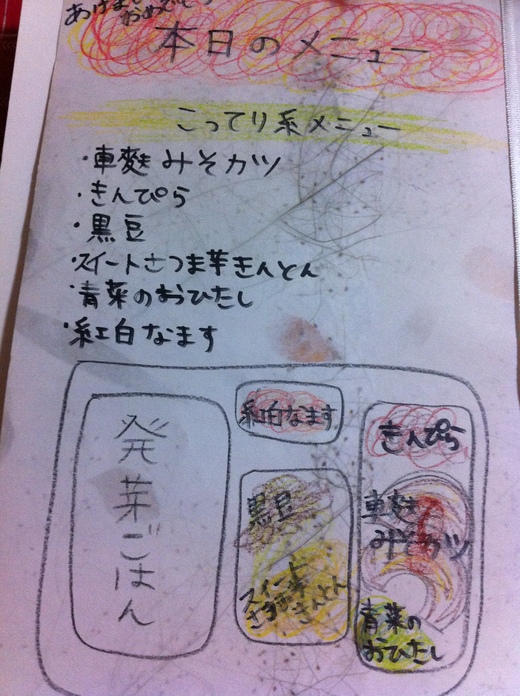 あけまして
おめでとう
本日のメニュー
こってり系メニュー
・車麩みそカツ
・きんぴら
・黒豆
・スイートさつま芋きんとん
・青菜のおひたし
・紅白なます
発芽ごはん
紅白なます
黒豆
スイート
さつま芋
きんとん
きんぴら
車麩
みそカツ
青菜の
おひたし